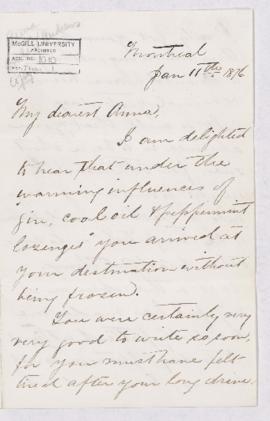 McGILL UNIVERSITY
ARCHIVES
ACC. NO.
REF.
Montreal
Jan 11th 1876
My dearest Anna,
I am delighted
to hear that under the
warming influences of
gin, cool oil & peppermint
lozenges" you arrived at
your destination without
being frozen.
You were certainly very
very good to write so soon,
for you must have felt
tired after your long drive.